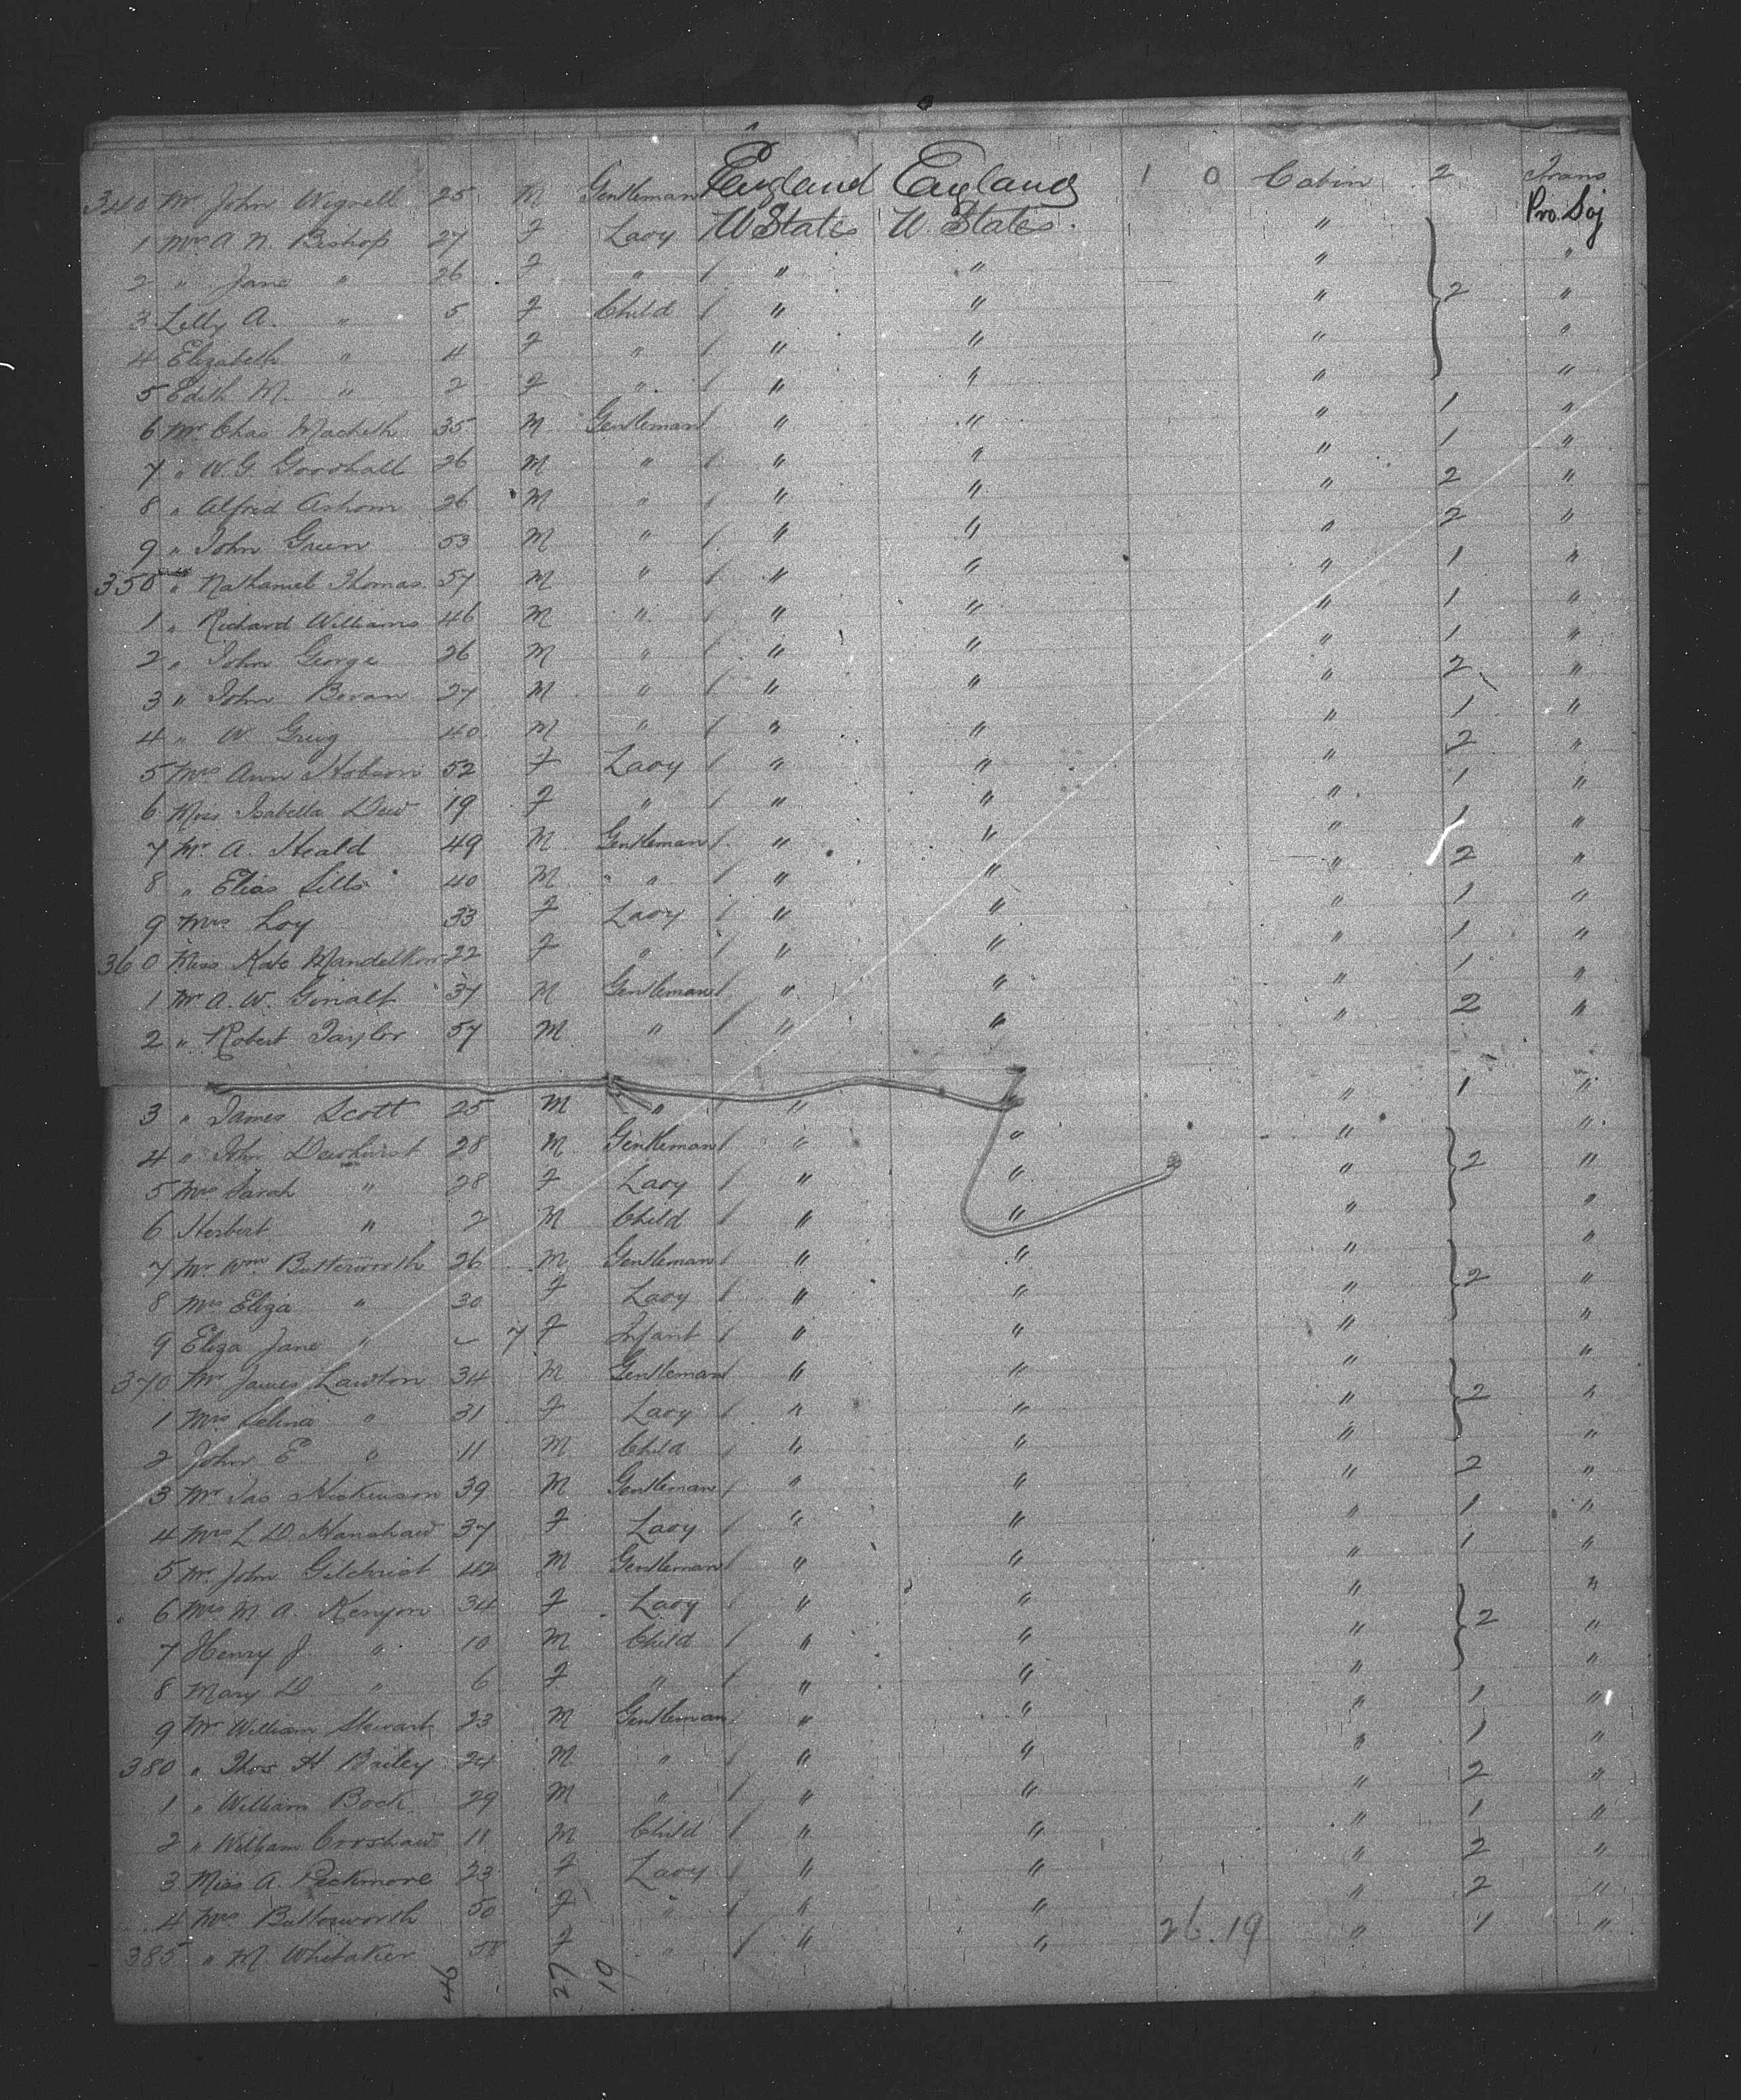 340 Mr John Wignell 25 M Gentleman England England 1 0 Cabin 2 Trans
Pro. Soj
1 Mrs A N. Bishop 27 F Lady / U States U. States. "
2 " Jane " 26 F " / " " " "
3 Lilly A. " 5 F Child / " " " 2 "
4 Elizabeth " 4 F " / " " " "
5 Edith M. " 2 F " / " " " "
6 Mr. Chas Macbeth 35 M Gentleman / " " " 1 "
7 " W. G. Goodhall 26 M " / " " " 1 "
8 " Alfred 26 M " / " " " 2 "
9 " John Green 53 M " / " " " 2 "
350 " Nathaniel Thomas 57 M " / " " " 1 "
1 " Richard Williams 46 M " / " " " 1 "
2 " John George 26 M " / " " " 1 "
3 " John Bevan 27 M " / " " " 2 "
4 " W 40 M " / " " " 1 "
5 Mrs Ann Hobson 52 F Lady / " " " 2 "
6 Miss Isabella Dew 19 F " / " " " 1 "
7 Mr A. Heald 49 M Gentleman / " " " 1 "
8 " Elias 40 M " / " " " 2 "
9 Mrs Loy 33 F Lady / " " " 1 "
360 Miss Kate 22 F " / " " " 1 "
1 Mr A. W. 37 M Gentleman / " " " 1 "
2 " Robert Taylor 57 M " / " " " 2 "
3 " James Scott 25 M " / " " " 1 "
4 " John Dewhurst 28 M Gentleman / " " " "
5 Mrs Sarah " 28 F Lady / " " " 2 "
6 Herbert " 2 M Child / " " " "
7 Mr. Wm Butterworth 26 M Gentleman / " " " "
8 Mrs Eliza " 30 F Lady / " " " 2 "
9 Eliza Jane " 7 F Infant / " " " "
370 Mr James Lawton 34 M Gentleman / " " " "
1 Mrs Selina " 31 F Lady / " " " 2 "
2 John E " 11 M Child / " " " "
3 Mr Jas 39 M Gentleman / " " " 2 "
4 Mrs L D Hanshaw 37 F Lady / " " " 1 "
5 Mr. John Gilchrist 42 M Gentleman / " " " 1 "
6 Mrs M. A. Kenyon 34 F Lady / " " " "
7 Henry J. " 10 M Child / " " " 2 "
8 Mary D. " 6 F " / " " " "
9 Mr William Stewart 23 M Gentleman / " " " 1 "
380 " Thos H Briley 24 M " / " " " 1 "
1 " William Bock 29 M " / " " " 2 "
2 " William Croshaw 11 M Child / " " " 1 "
3 Miss A. Peckmore 23 F Lady / " " " 2 "
4 Mrs Butterworth 50 F " / " " " 2 "
385 " M. Whitaker 58 F " / " " 26.19 " 1 "
46 27 19